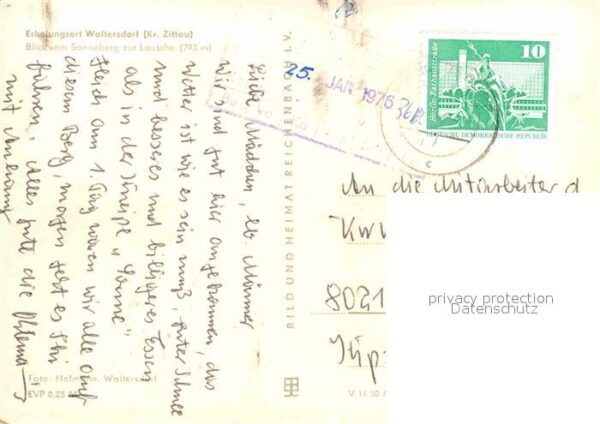 Erholungsort Waltersdorf (Kr. Zittau)
Blick vom Sonneberg zur Lausche (793 m)
Liebe Mädchen, lb. Männer
wir sind gut hier angekommen, das
Wetter ist wie es sein muß, guter Schnee
und besseres und billigeres Essen
als in der Kneipe "Sonne"
Gleich am 1. Tag waren wir alle auf
diesem Berg, morgen geht es Ski
fahren. Alles gute die
mit Anhang
Foto: Hofmann, Waltersdorf
EVP 0,25 M
BILD UND HEIMAT REICHENBACH I. V.
V 11 50 A
25. JAN 1976
10
Berlin, Rathausstraße
DEUTSCHE DEMOKRATISCHE REPUBLIK
c
An die Mitarbeiter d
8021
privacy protection
Datenschutz